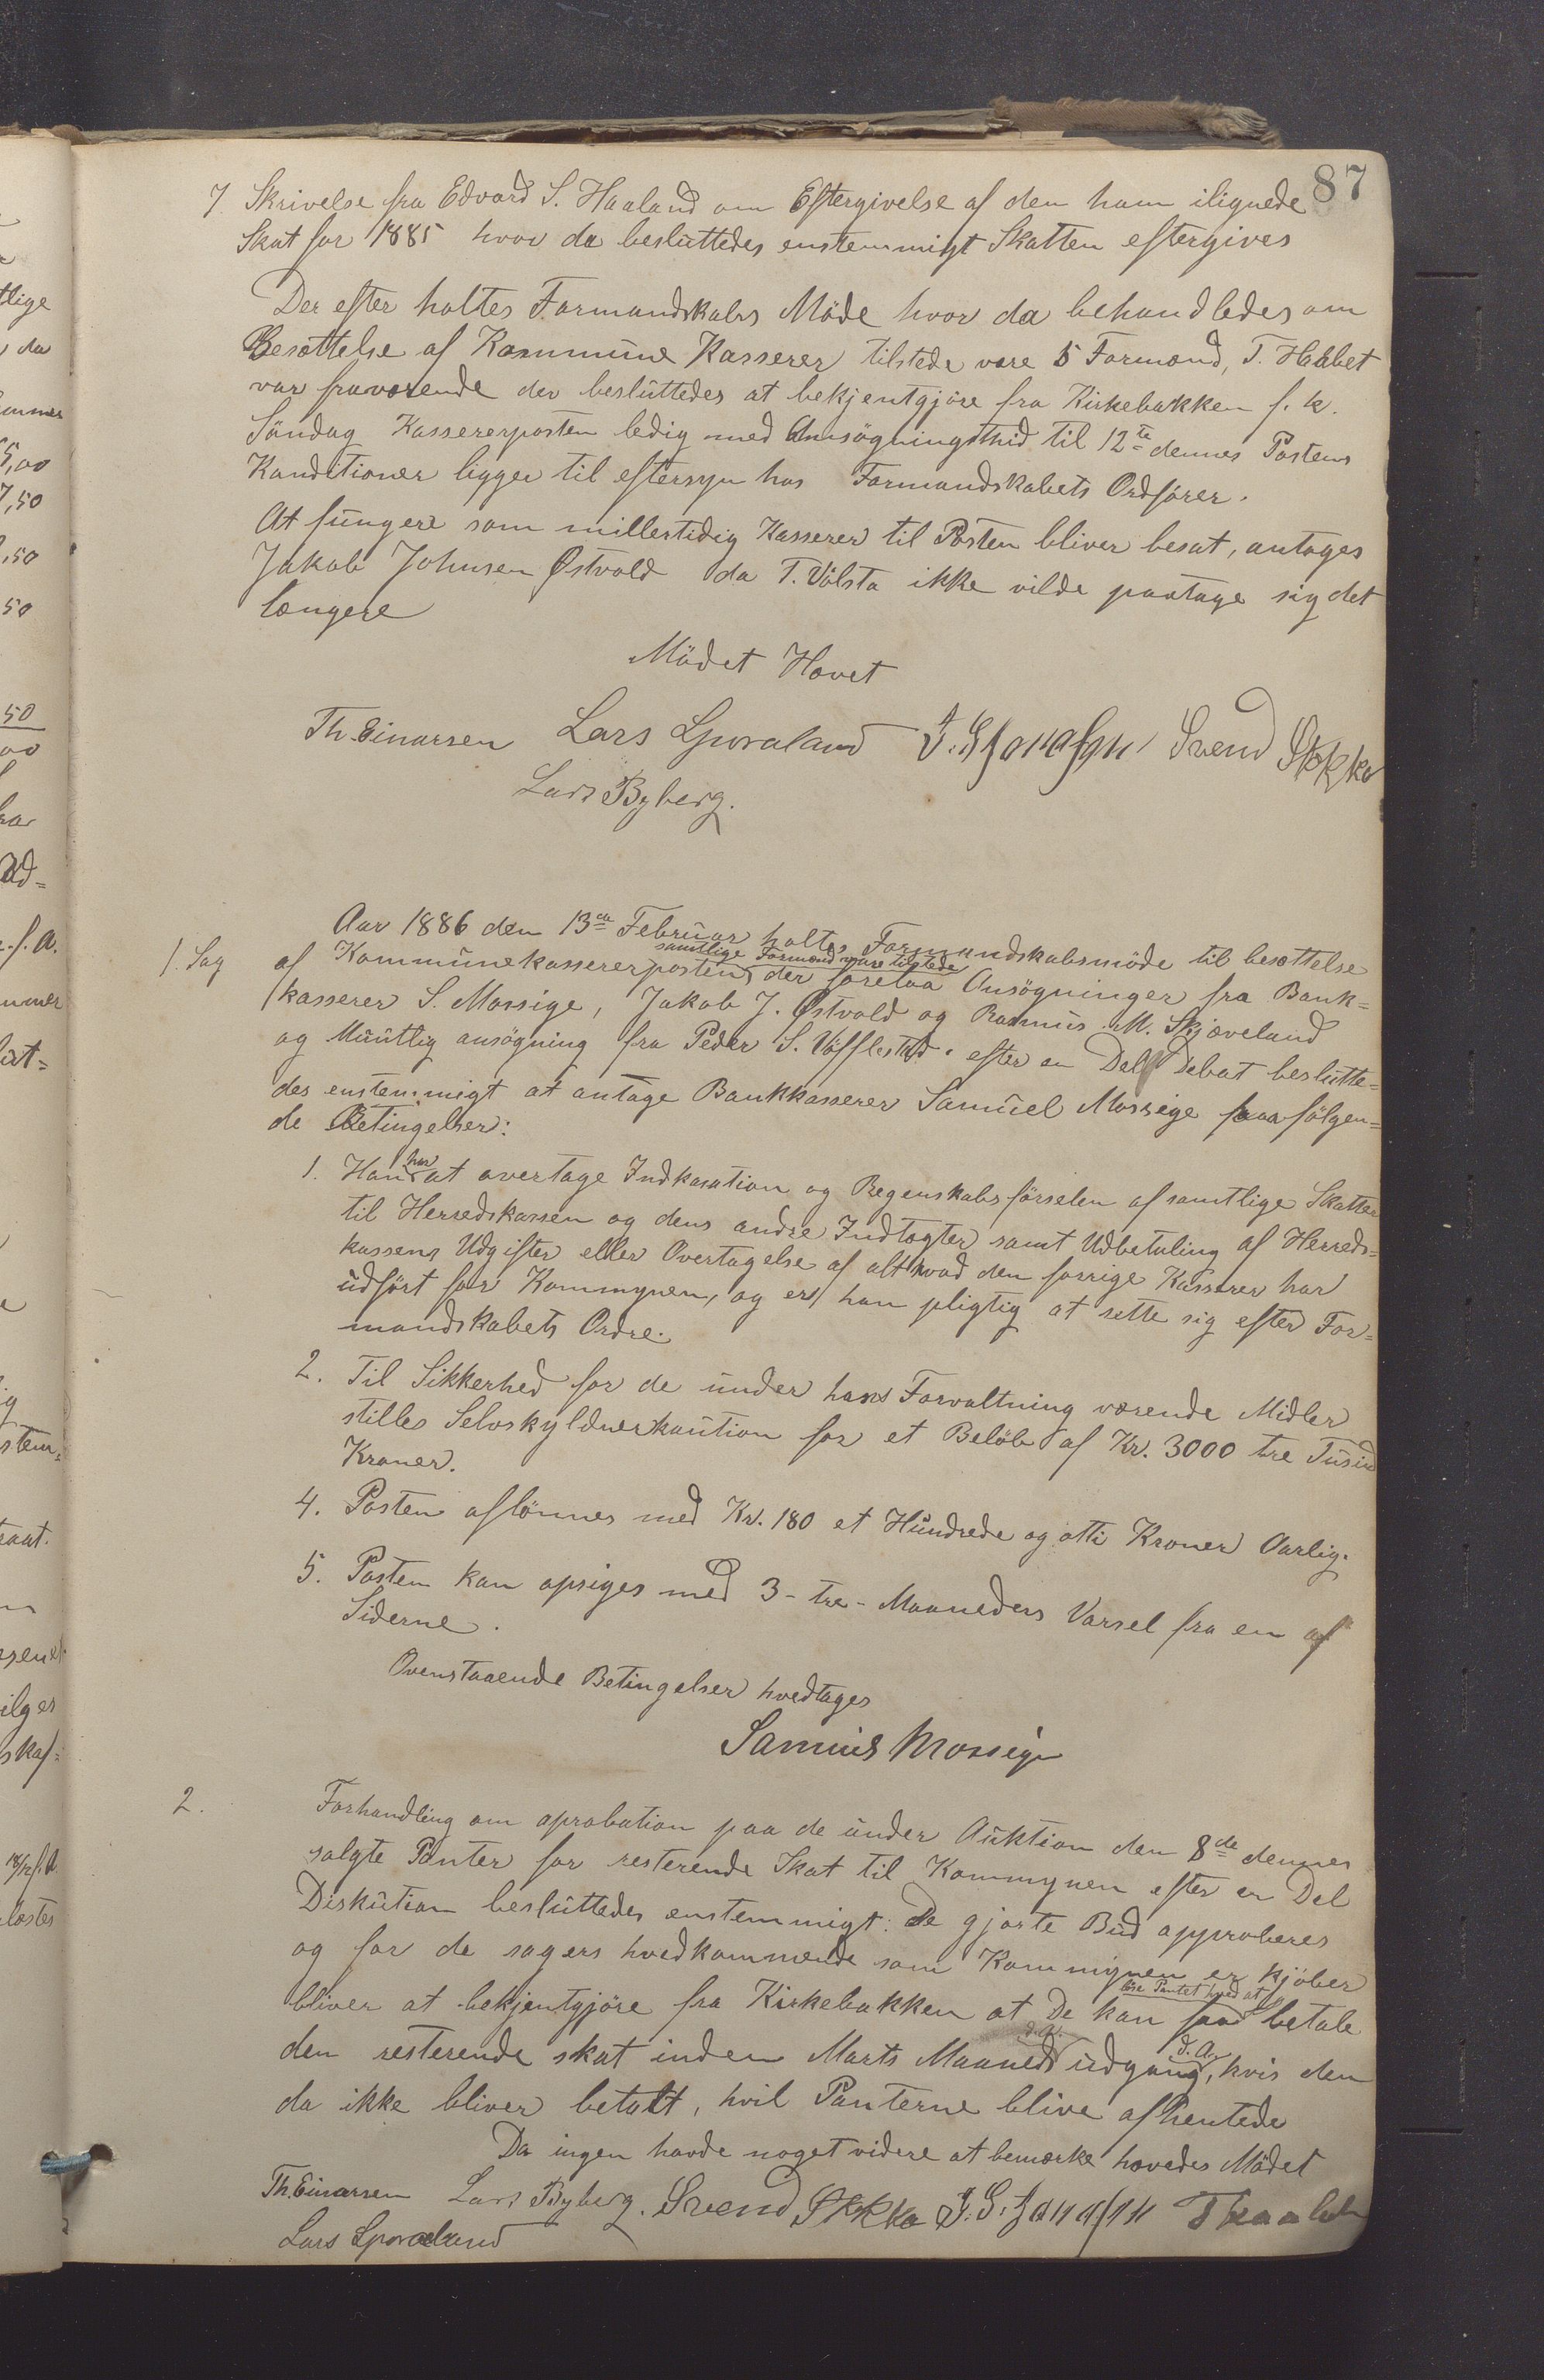 87
7 Skrivelse fra Edvard S. Haaland om Eftergivelse af den ham ilignede
Skat for 1885 hvor da besluttedes enstemmigt Skatten eftergives
Der efter holtes Formandskabs Möde hvor da behandledes om
Besættelse af Kommune Kasserer tilstede vare 5 Formænd, T. Haabet
var fraværende der besluttedes at bekjentgjöre fra Kirkebakken f. k.
Söndag Kassererposten ledig med Ansögningsthid til 12te dennes Postens
Konditioner ligger til eftersyn hos Formandskabets Ordförer.
At fungere som millertidig Kasserer til Posten bliver besat, antages
Jakob Johnsen Østvold da T. Völsta ikke vilde paatage sig det
længere
Mödet Hævet
Th. Einarsen Lars Sporaland J. G. Jonassen Svend Skkka
Lars Byberg.
Aar 1886 den 13de Februar holtes Formandskabsmöde til besættelse
1. Sag af Kommunekassererposten, samtlige Formænd vare tilstede der forelaa Ansögninger fra Bank-
kasserer S. Mossige, Jakob J. Østvold og Rasmus M. Skjæveland
og Muntlig ansögning fra Peder S. Vöfflestad. efter en Del Debat beslutte-
des enstemmigt at antage Bankkasserer Samuel Mossige paa fölgen-
de Betingelser:
1. Han har at overtage Indkasation og Regenskabsförselen af samtlige Skatter
til Herredskassen og dens andre Indtægter samt Udbetaling af Herreds-
kassens Udgifter eller Overtagelse af alt hvad den forrige Kasserer har
udfört for Kommynen, og er han pligtig at sette sig efter For-
mandskabets Ordre.
2. Til Sikkerhed for de under hans Forvaltning værende Midler
stilles Selvskyldnerkaution for et Belöb af Kr. 3000 tre Tusind
Kroner.
4. Posten aflönnes med Kr. 180 et Hundrede og otti Kroner Aarlig.
5. Posten kan opsiges med 3 - tre - Maaneders Varsel fra en af
Siderne.
Ovenstaaende Betingelser hvedtages
Samuel Mossige
2. Forhandling om aprobation paa de under Auktion den 8de dennes
solgte Panter for resterende Skat til Kommynen efter en Del
Diskution besluttedes enstemmigt: De gjorte Bud approberes
og for de sagers hvedkommende som Kommynen er kjöber
bliver at bekjentgjöre fra Kirkebakken at De kan faa löse Pantet hved at betale
den resterende skat inden Marts Maaneds udgang d. A., hvis den
da ikke bliver betalt, hvil Panterne blive afhentede
Da ingen havde noget videre at bemærke hævedes Mödet
Th. Einarsen Lars Byberg. Svend Skkka J. G. Jonassen T Haabet
Lars Sporaland